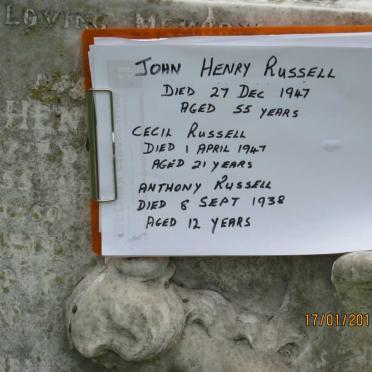 LOVING MEMORY
JOHN HENRY RUSSELL
DIED 27 DEC 1947
AGED 55 YEARS
CECIL RUSSELL
DIED 1 APRIL 1947
AGED 21 YEARS
ANTHONY RUSSELL
DIED 8 SEPT 1938
AGED 12 YEARS
17/01/201